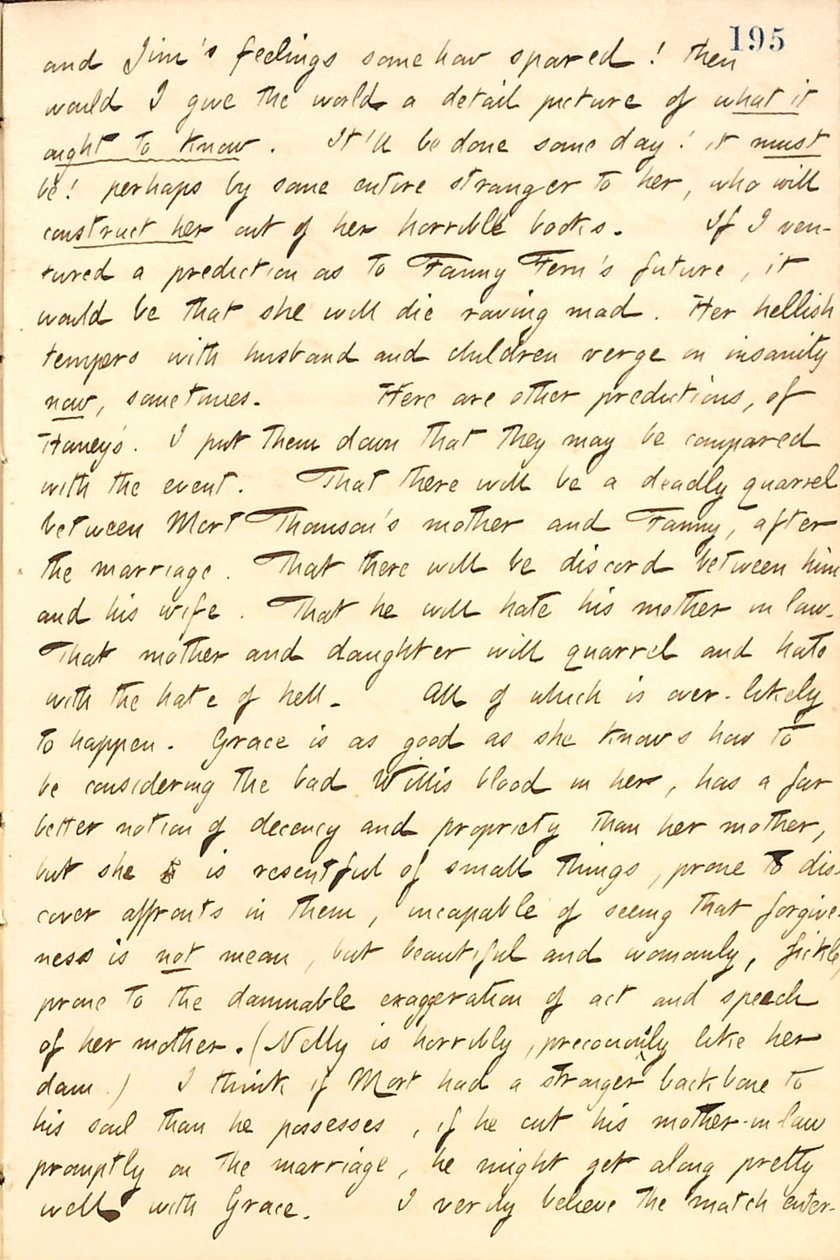 195
and Jim's feelings somehow spared! then
would I give the world a detail picture of what it
ought to know. It'll be done some day! it must
be! perhaps by some entire stranger to her, who will
construct her out of her horrible books. If I ven-
tured a prediction as to Fanny Fern's future, it
would be that she will die raving mad. Her hellish
tempers with husband and children verge on insanity
now, sometimes. Here are other predictions, of
Haney's. I put them down that they may be compared
with the event. That there will be a deadly quarrel
between Mort Thomson's mother and Fanny, after
the marriage. That there will be discord between him
and his wife. That he will hate his mother in law.
That mother and daughter will quarrel and hate
with the hate of hell. All of which is over-likely
to happen. Grace is as good as she knows how to
be considering the bad Willis blood in her, has a far
better notion of decency and propriety than her mother,
but she is resentful of small things, prone to dis-
cover affronts in them, incapable of seeing that forgive-
ness is not mean, but beautiful and womanly, fickle
prone to the damnable exaggeration of act and speech
of her mother. (Nelly is horribly, precociously like her
dam.) I think if Mort had a stronger backbone to
his soul than he possesses, if he cut his mother-in-law
promptly on the marriage, he might get along pretty
well with Grace. I verily believe the match enter-